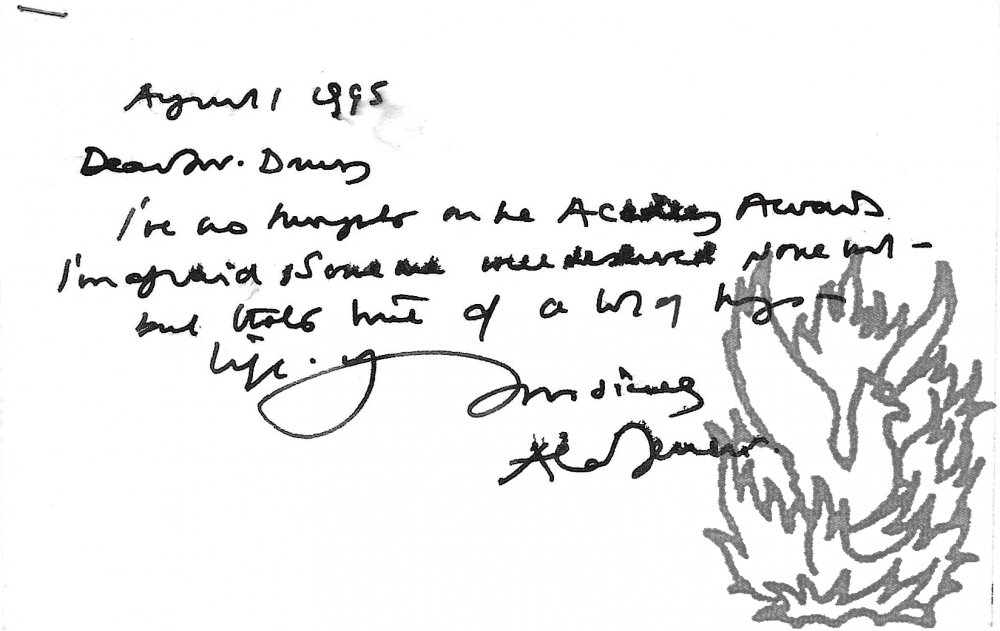 August 1 1995
Dear Mr. Drury
I've no thoughts on the Academy Awards
I'm afraid. Some are well deserved some not –
but that's true of a lot of things –
life. Yours sincerely
Alan Bennett.